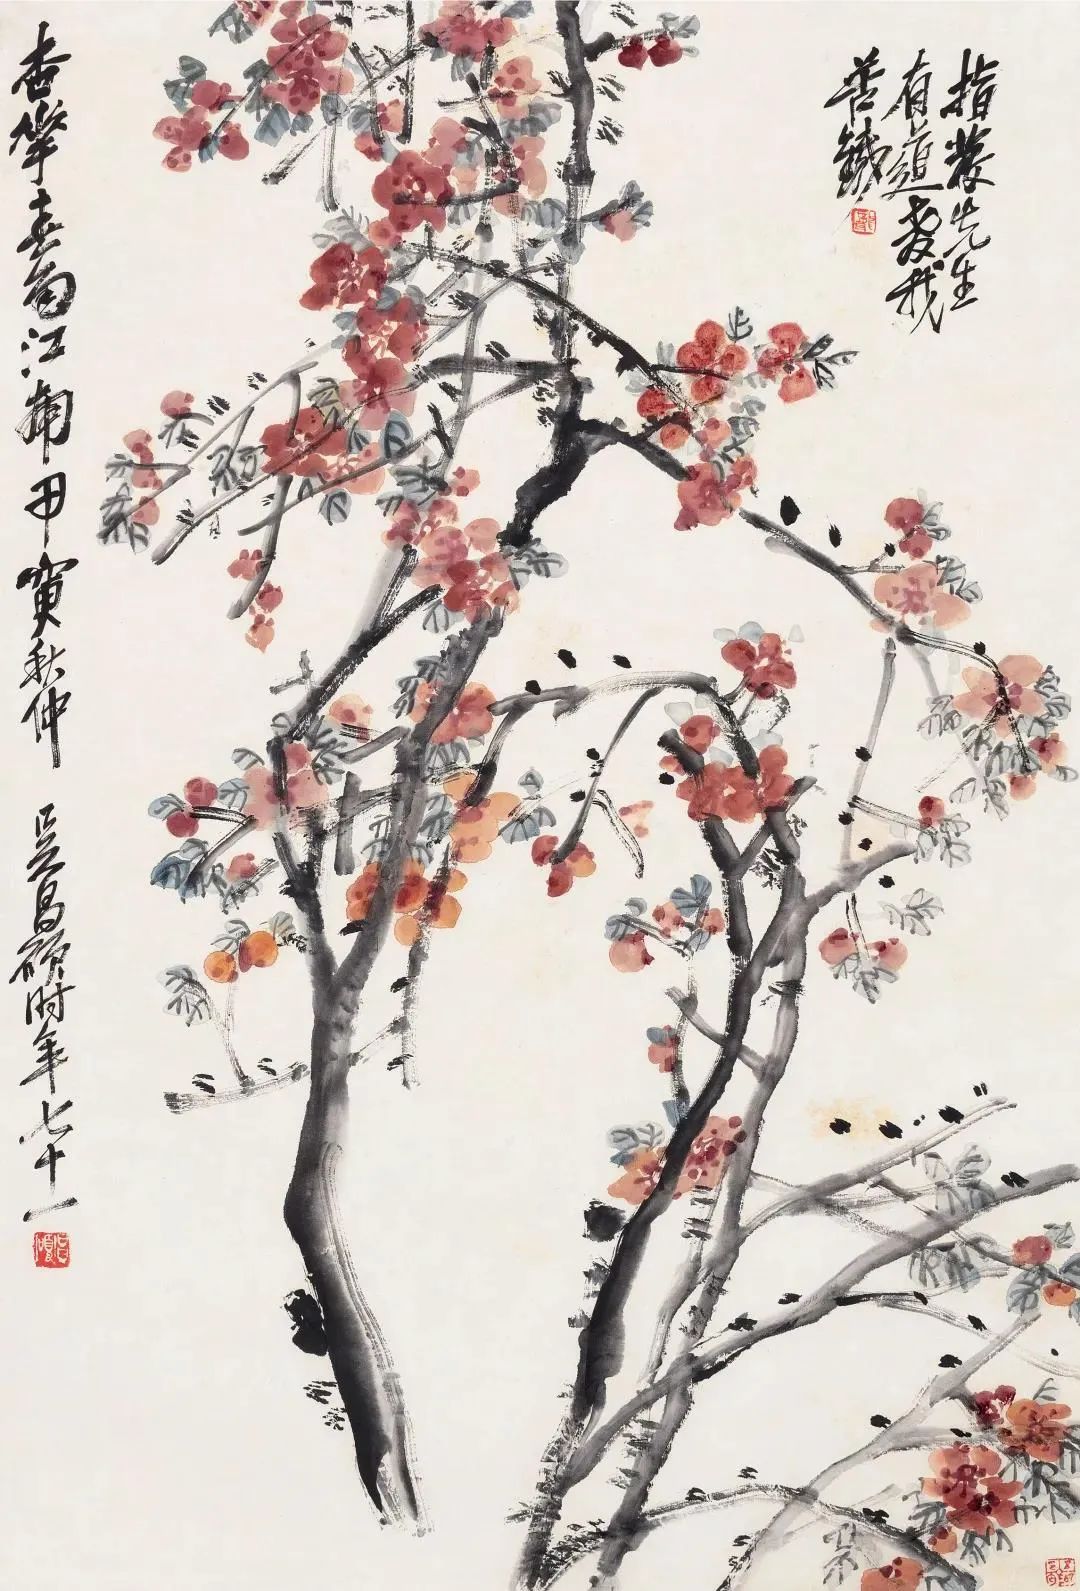 指先生
有道教我
苦鐵
杏華春雨江南甲寅秋仲 吳昌碩时年七十一